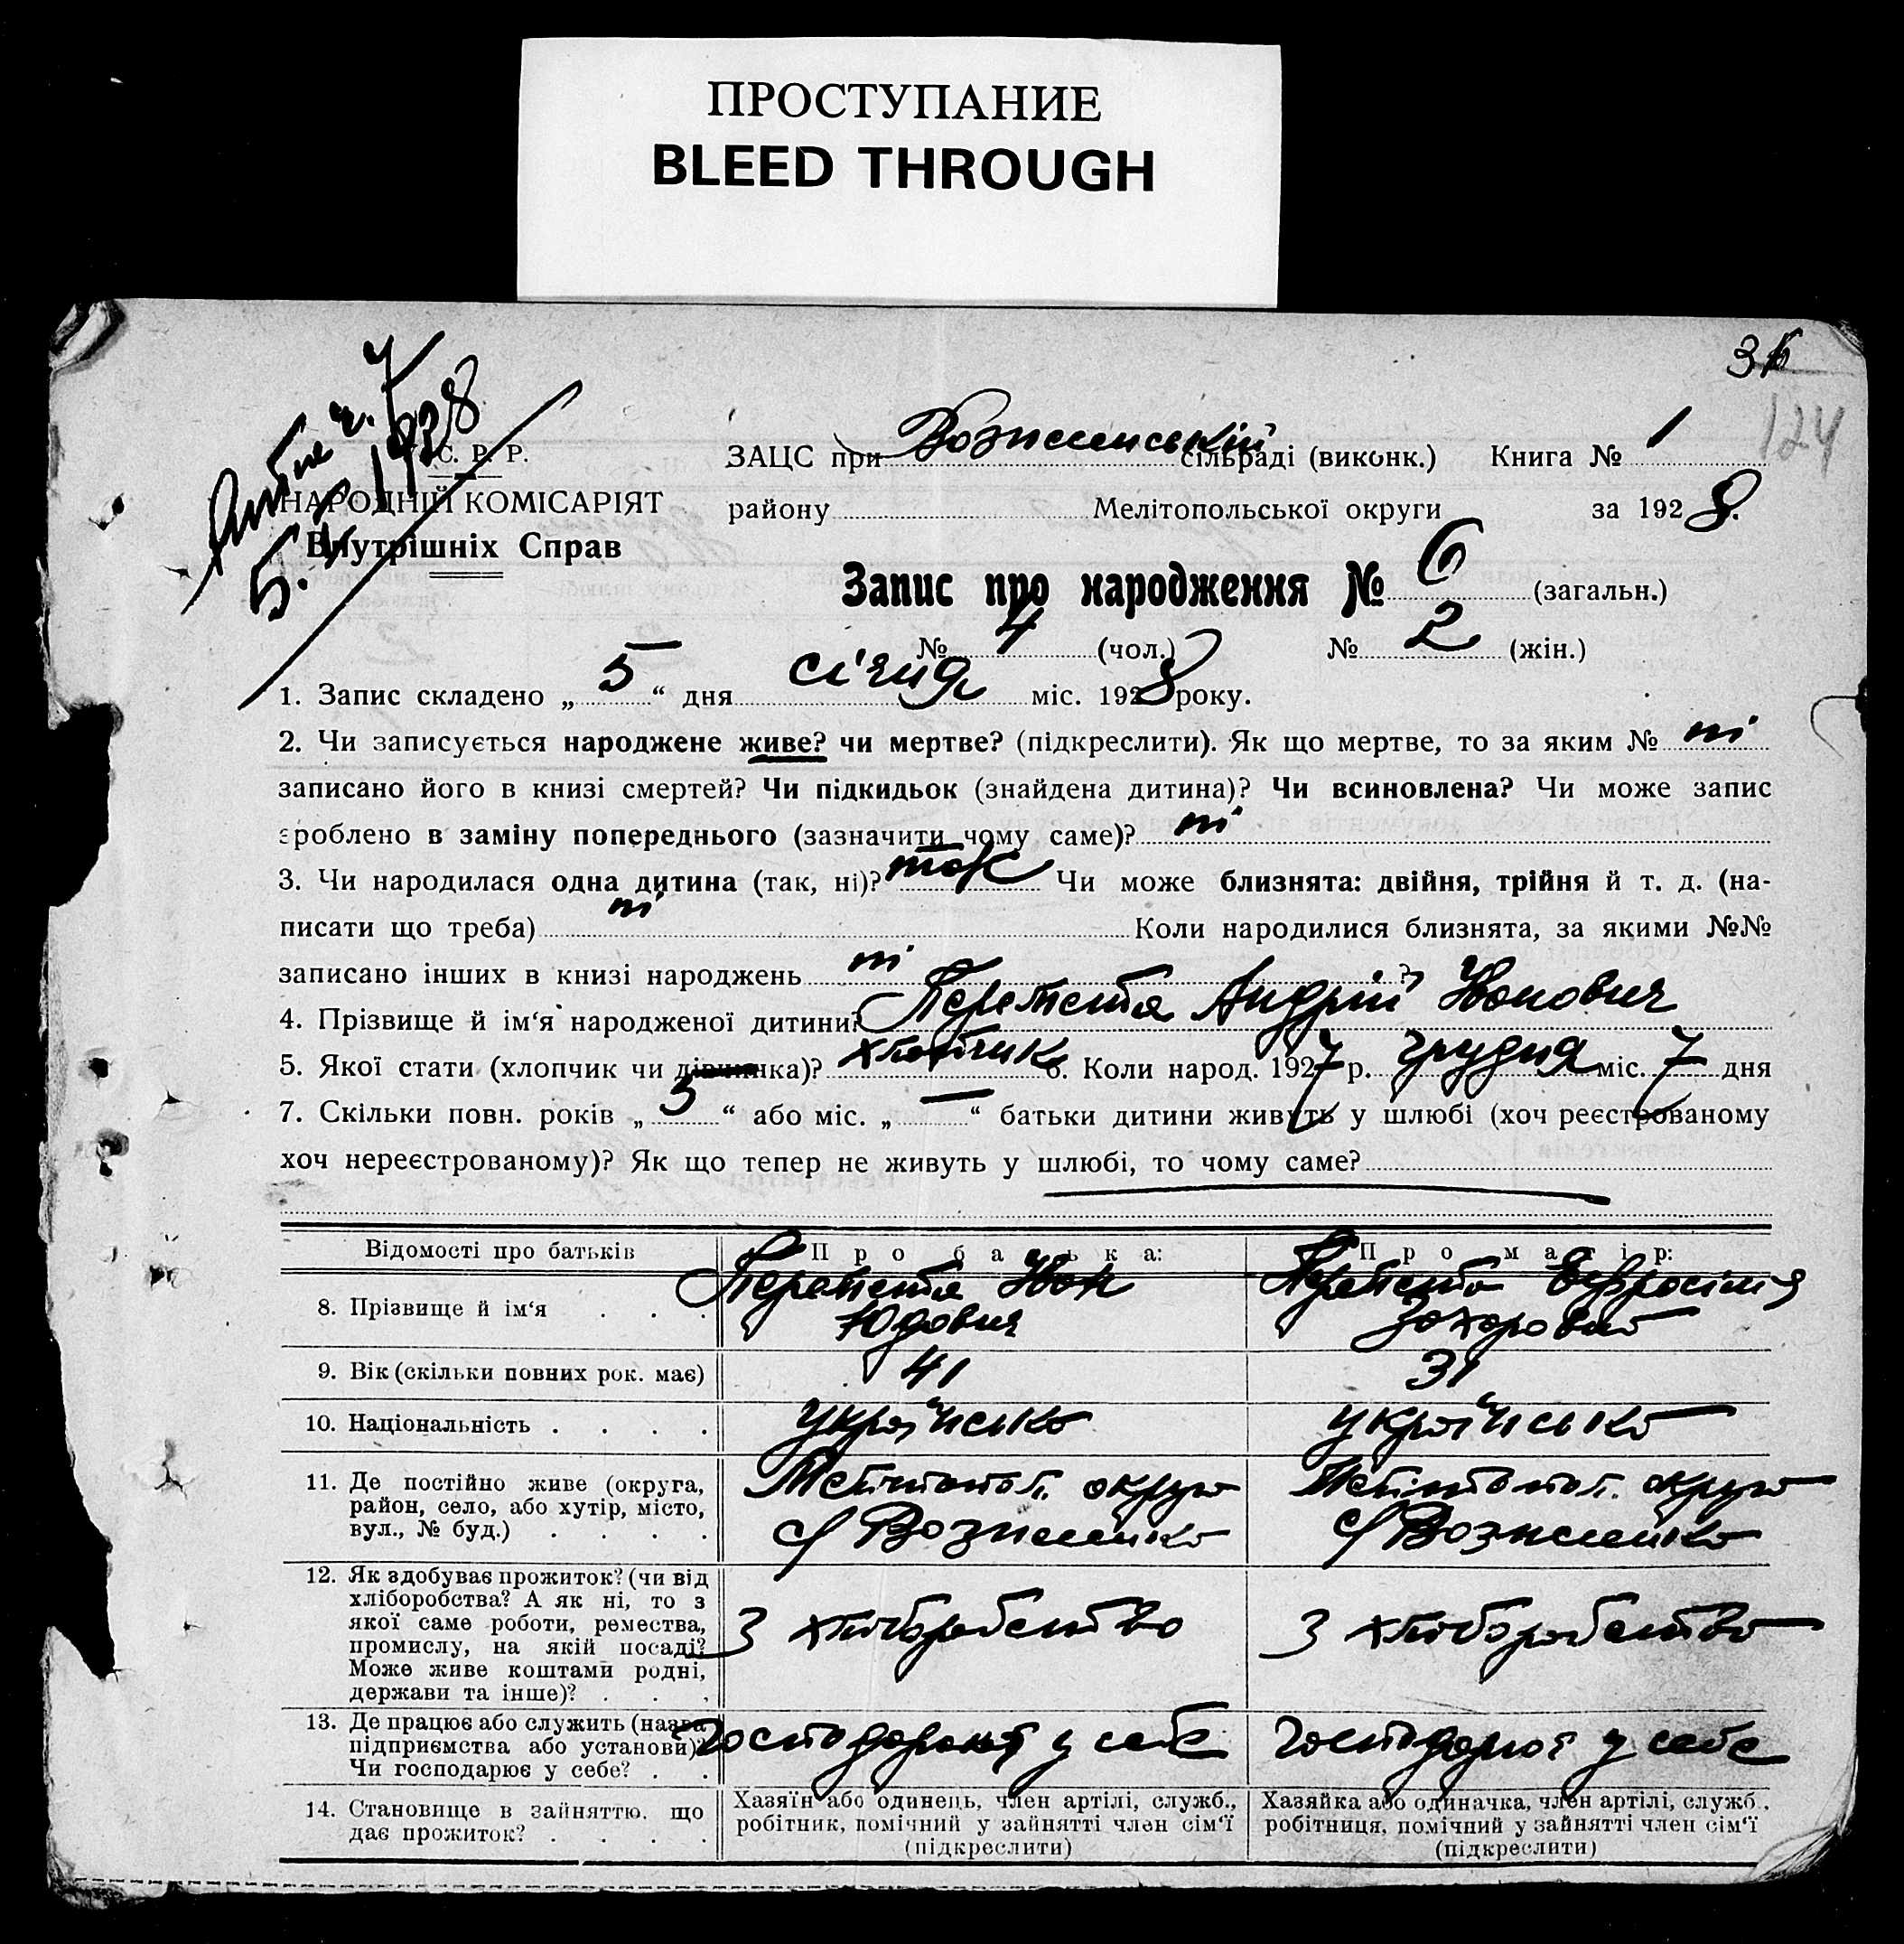 ПРОСТУПАНИЕ
BLEED THROUGH
36
124
1928
5.
У.С.Р.Р.
НАРОДНІЙ КОМІСАРІЯТ
Внутрішніх Справ
ЗАЦС при Вознесенській сільраді (виконк.) Книга № 1
району Мелітопольської округи за 1928.
Запис про народження № 6 (загальн.)
№ 4 (чол.) № 2 (жін.)
1. Запис складено „ 5 “ дня січня міс. 1928 року.
2. Чи записується народжене живе? чи мертве? (підкреслити). Як що мертве, то за яким № ні
записано його в книзі смертей? Чи підкидьок (знайдена дитина)? Чи всиновлена? Чи може запис
зроблено в заміну попереднього (зазначити чому саме)? ні
3. Чи народилася одна дитина (так, ні)? так Чи може близнята: двійня, трійня й т. д. (на-
писати що треба) ні Коли народилися близнята, за якими №№
записано інших в книзі народжень ні ?
4. Прізвище й ім‘я народженої дитини? Андрій Іванович
5. Якої стати (хлопчик чи дівчинка)? хлопчик 6. Коли народ. 1927 р. грудня міс. 7 дня
7. Скільки повн. років „ 5 “ або міс. „ — “ батьки дитини живуть у шлюбі (хоч реєстрованому
хоч нереєстрованому)? Як що тепер не живуть у шлюбі, то чому саме?
Відомості про батьків Про батька: Про матір:
8. Прізвище й ім‘я . . . Іван Юдович Захаровна
9. Вік (скільки повних рок. має) 41 31
10. Національність . . . . українська українська
11. Де постійно живе (округа, район, село, або хутір, місто, вул., № буд.) . . . . Мелітопол. округа с/ Вознесенка Мелітопол. округа с/ Вознесенка
12. Як здобуває прожиток? (чи від хліборобства? А як ні, то з якої саме роботи, ремества, промислу, на якій посаді? Може живе коштами родні, держави та інше)? . . . З хліборобства З хліборобства
13. Де працює або служить (назва підприємства або установи)? Чи господарює у себе? . . у себе у себе
14. Становище в зайняттю, що дає прожиток? . . . . Хазяїн або одинець, член артілі, служб., робітник, помічний у зайнятті член сім‘ї (підкреслити) Хазяйка або одиначка, член артілі, служб., робітниця, помічний у зайнятті член сім‘ї (підкреслити)